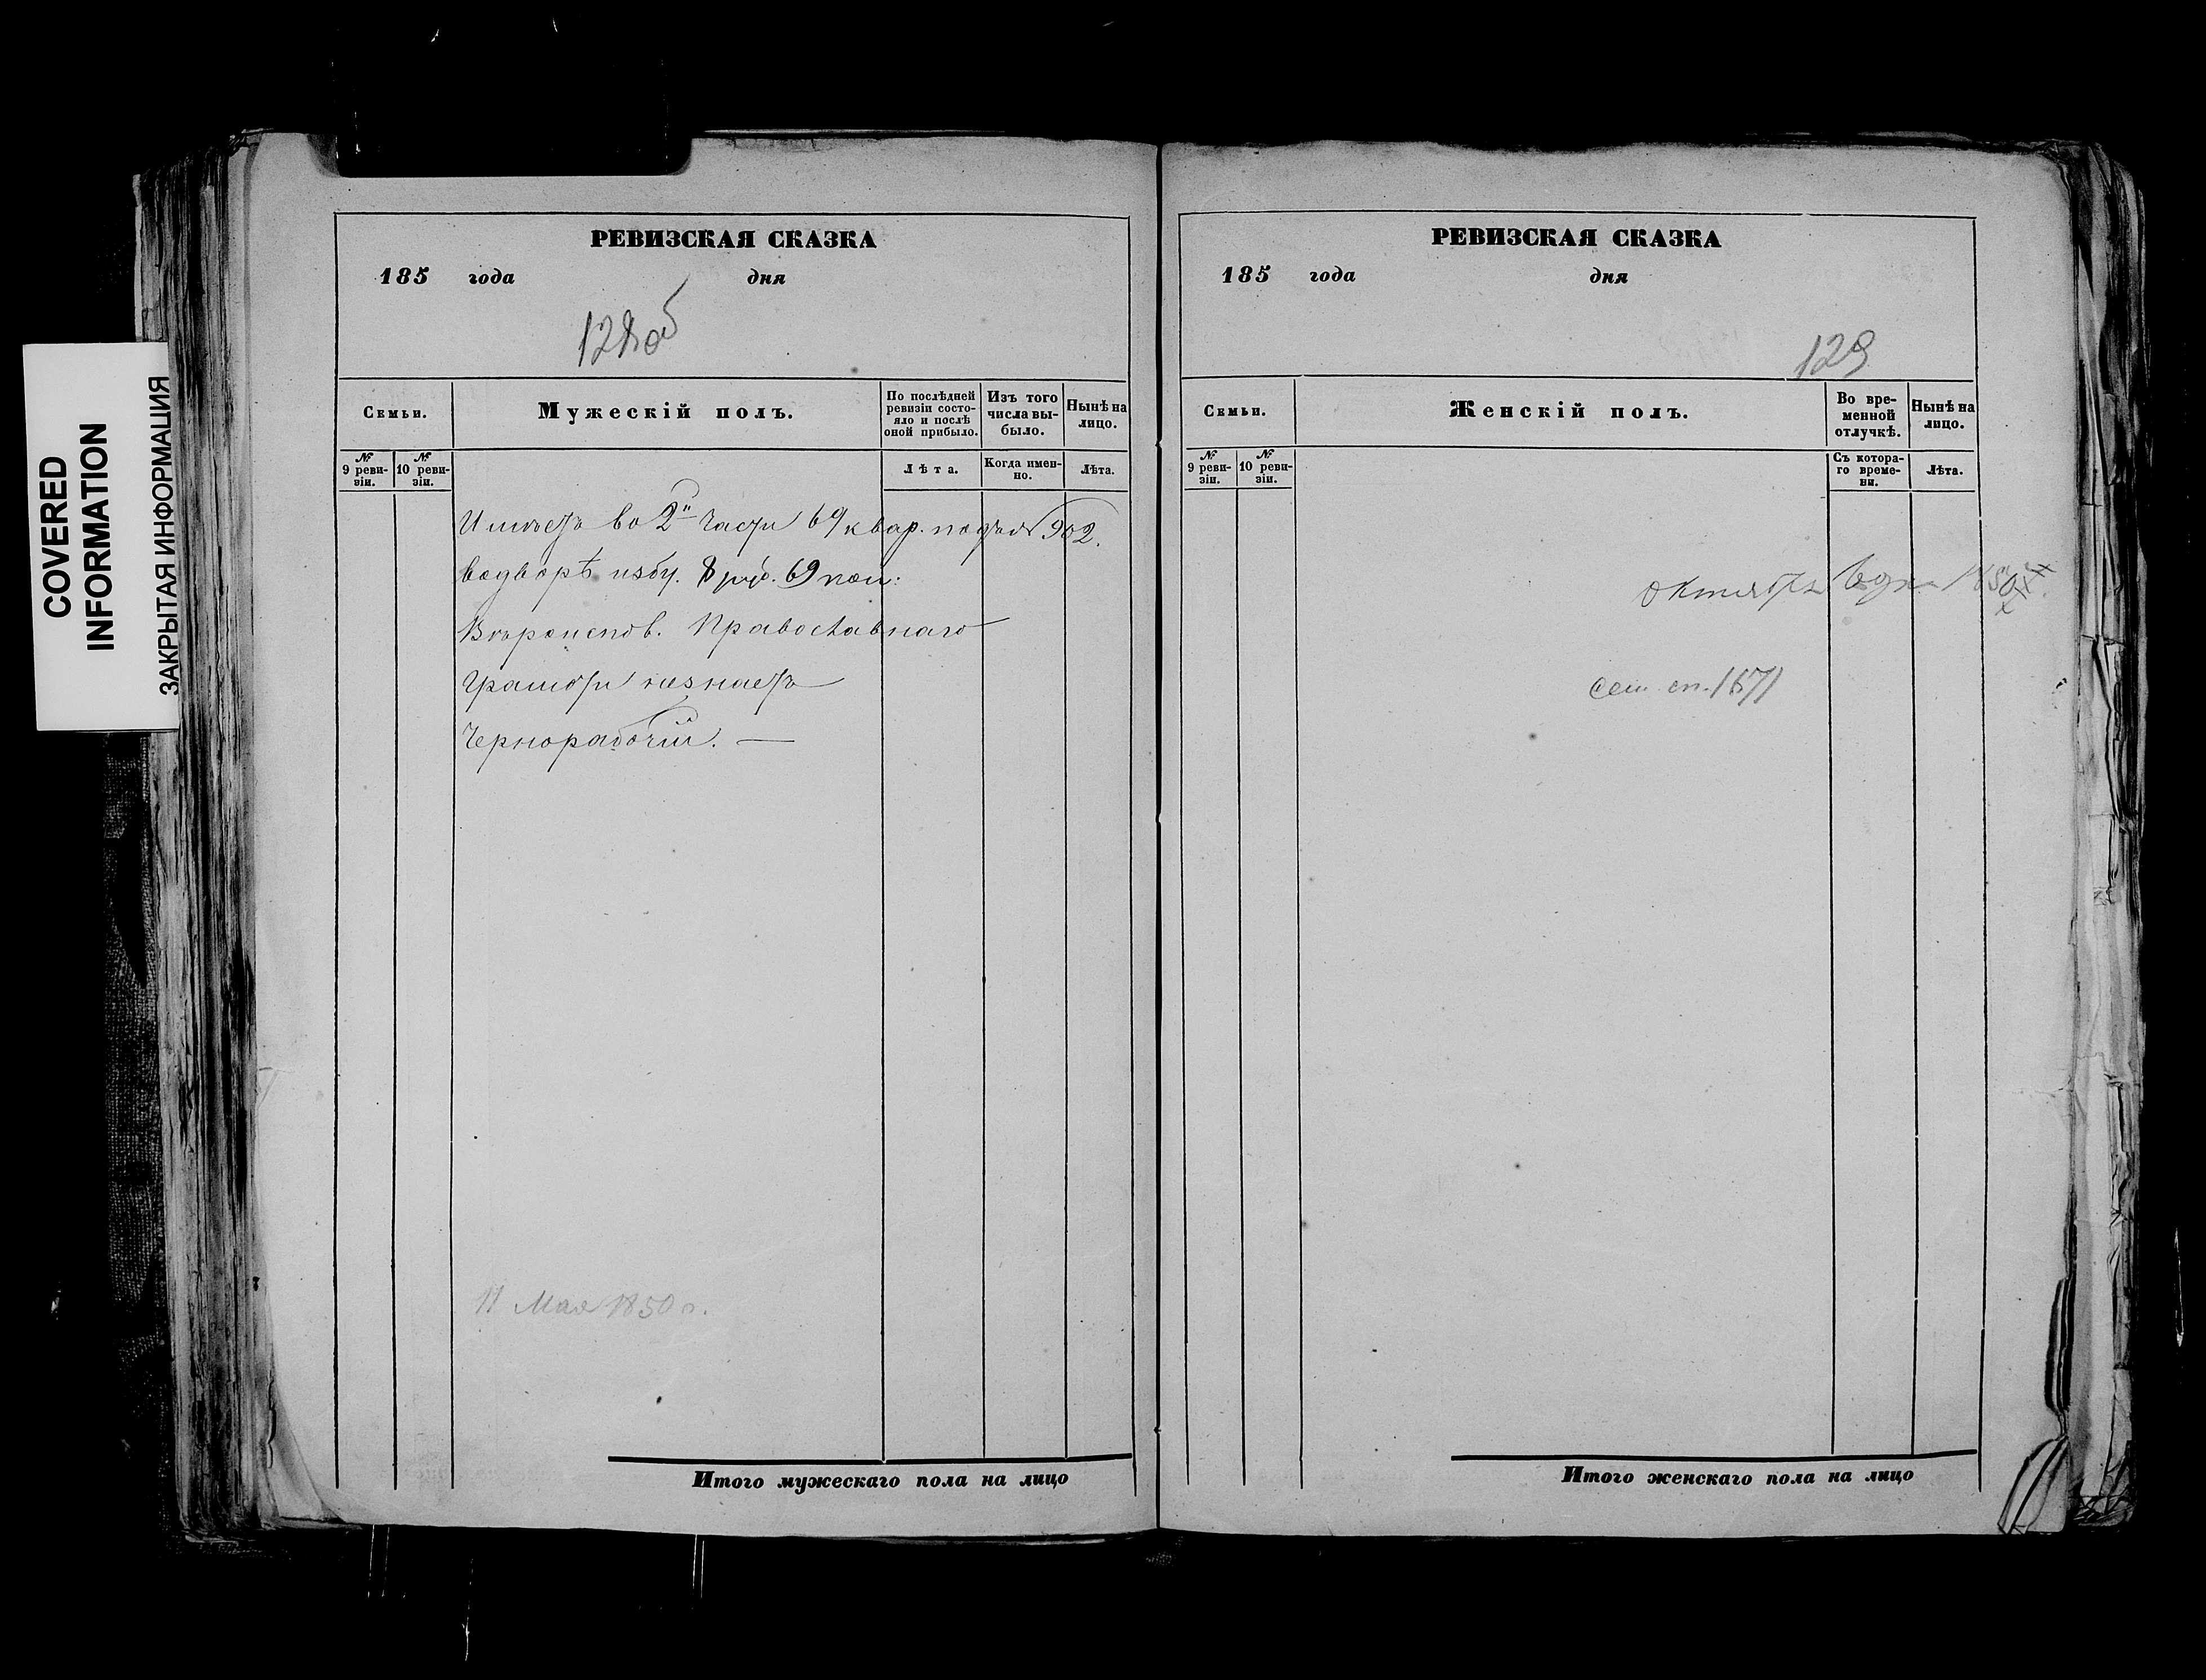 COVERED
INFORMATION
ЗАКРЫТАЯ ИНФОРМАЦИЯ
РЕВИЗСКАЯ СКАЗКА
185 года дня
128об
Семьи.
Мужескій полъ.
По послѣдней ревизіи состо-
яло и послѣ
оной прибыло.
Изъ того
числа вы-
было.
Нынѣ на
лицо.
№
9 реви-
зіи.
№
10 реви-
зіи.
Лѣта.
Когда имен-
но.
Лѣта.
Имѣетъ во 2й части 69 квар. подъ № 902.
водворѣ избу. 8 руб. 69 коп:
Вѣроисповѣ. Православнаго
Грамоти незнаетъ
Чернорабочій. —
11 Мая 1850 г.
Итого мужескаго пола на лицо
РЕВИЗСКАЯ СКАЗКА
185 года дня
129
Семьи.
Женскій полъ.
Во вре-
менной
отлучкѣ.
Нынѣ на
лицо.
№
9 реви-
зіи.
№
10 реви-
зіи.
Съ котора-
го време-
ни.
Лѣта.
октября
сем. сп. 1671
Итого женскаго пола на лицо